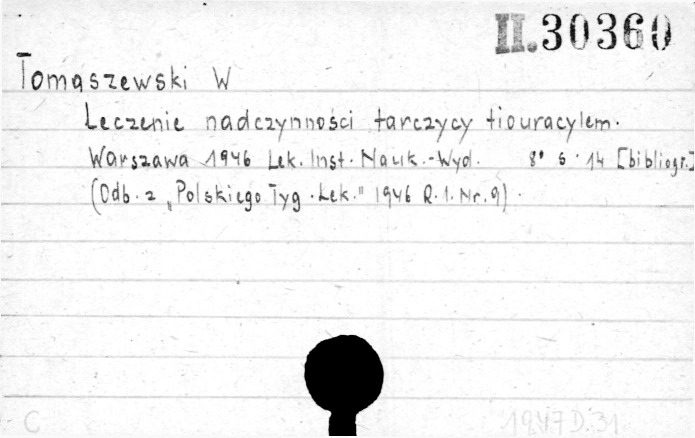 II.30360
Tomaszewski W
Leczenie nadczynności tarczycy tiouracylem.
Warszawa 1946 Lek. Inst. Nauk.-Wyd. 8° s. 14 [bibliogr.]
(Odb. z „Polskiego Tyg. Lek." 1946 R. 1. Nr. 9).
C 1947 D. 31